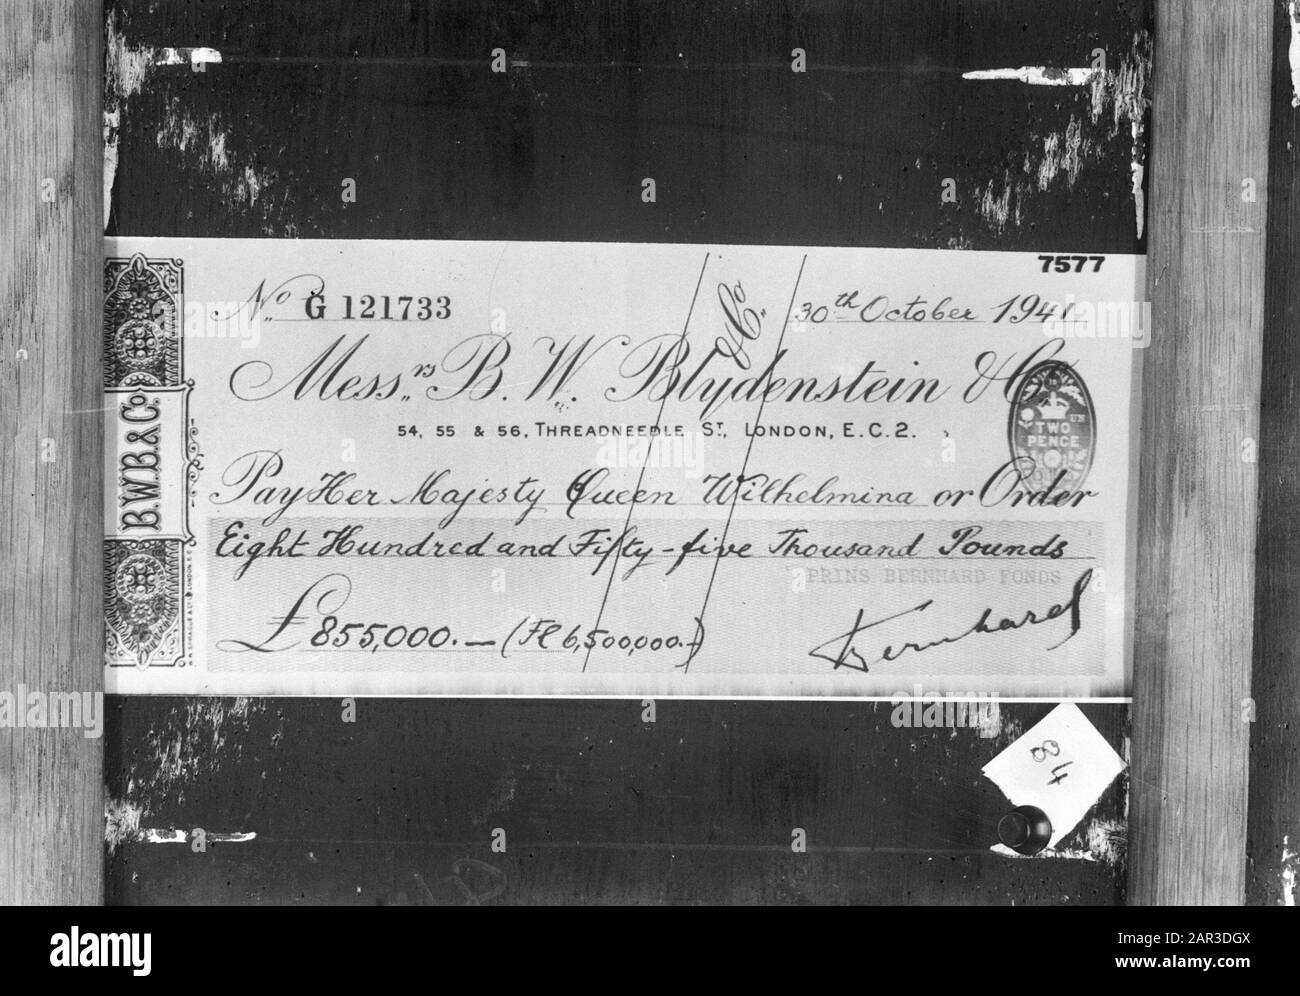 7577
No. G 121733
30th October 1941.
& Co.
Mess.rs B. W. Blydenstein & Co.
54, 55 & 56, THREADNEEDLE ST., LONDON, E.C.2.
TWO
PENCE
B.W.B.& Co.
Pay Her Majesty Queen Wilhelmina or Order
Eight Hundred and Fifty-five Thousand Pounds
PRINS BERNHARD FONDS
£ 855,000.— (Fl 6,500,000.-)
Bernhard
84
a
alamy
alamy
Image ID: 2AR3DGX
www.alamy.com